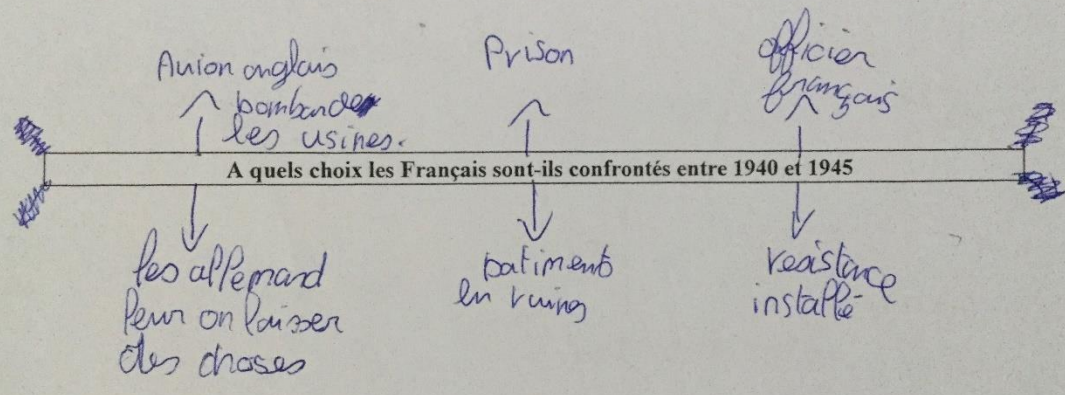 Avion anglais
bombarde
les usines.
Prison
officier
français
A quels choix les Français sont-ils confrontés entre 1940 et 1945
les allemand
leur on laisser
des choses
batiments
en ruines
resistance
installé